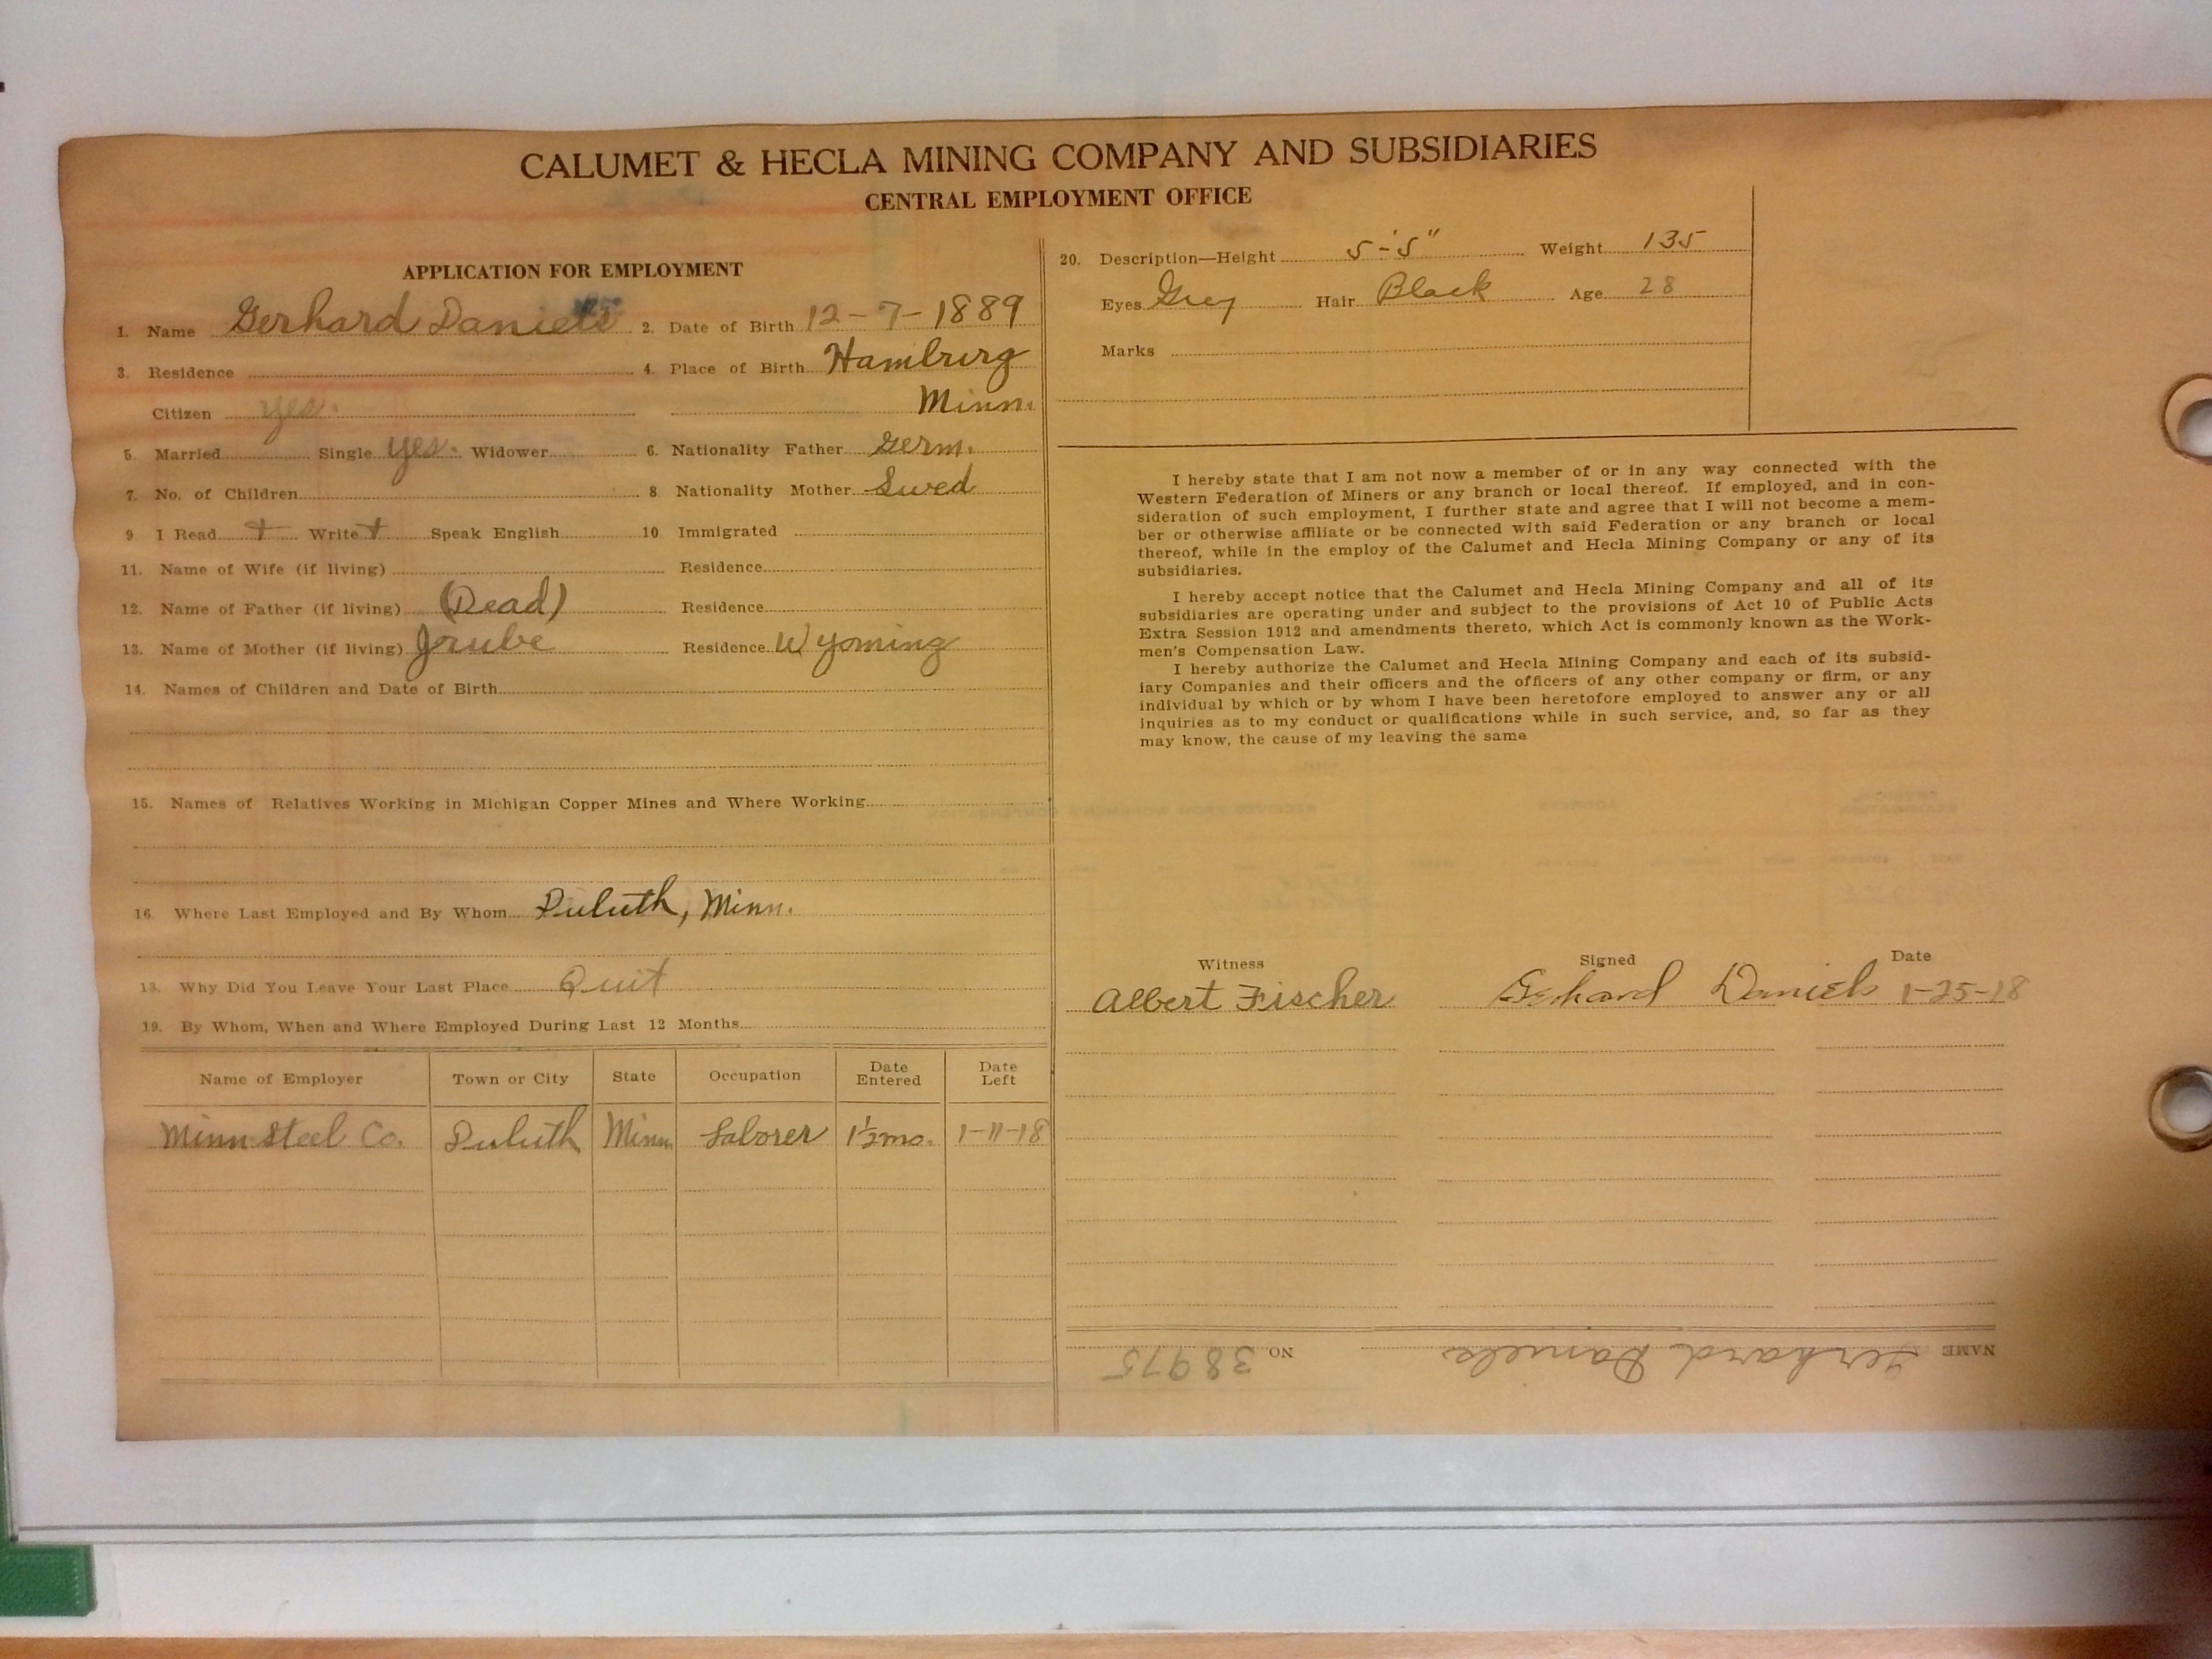 CALUMET & HECLA MINING COMPANY AND SUBSIDIARIES
CENTRAL EMPLOYMENT OFFICE
APPLICATION FOR EMPLOYMENT
1. Name Gerhard Daniels 2. Date of Birth 12-7-1889
3. Residence 4. Place of Birth Hamburg
Citizen yes. Minn.
5. Married Single yes. Widower 6. Nationality Father Germ.
7. No. of Children 8 Nationality Mother Swed
9 I Read + Write + Speak English 10 Immigrated
11. Name of Wife (if living) Residence
12. Name of Father (if living) (Dead) Residence
13. Name of Mother (if living) Residence Wyoming
14. Names of Children and Date of Birth
15. Names of Relatives Working in Michigan Copper Mines and Where Working
16. Where Last Employed and By Whom Duluth, Minn.
18. Why Did You Leave Your Last Place Quit
19. By Whom, When and Where Employed During Last 12 Months
Name of Employer Town or City State Occupation Date Entered Date Left
Minn Steel Co. Duluth Minn Laborer 1½ mo. 1-11-18
20. Description—Height 5'-5" Weight 135
Eyes Grey Hair Black Age 28
Marks
I hereby state that I am not now a member of or in any way connected with the
Western Federation of Miners or any branch or local thereof. If employed, and in con-
sideration of such employment, I further state and agree that I will not become a mem-
ber or otherwise affiliate or be connected with said Federation or any branch or local
thereof, while in the employ of the Calumet and Hecla Mining Company or any of its
subsidiaries.
I hereby accept notice that the Calumet and Hecla Mining Company and all of its
subsidiaries are operating under and subject to the provisions of Act 10 of Public Acts
Extra Session 1912 and amendments thereto, which Act is commonly known as the Work-
men's Compensation Law.
I hereby authorize the Calumet and Hecla Mining Company and each of its subsid-
iary Companies and their officers and the officers of any other company or firm, or any
individual by which or by whom I have been heretofore employed to answer any or all
inquiries as to my conduct or qualifications while in such service, and, so far as they
may know, the cause of my leaving the same
Witness Signed Date
Albert Fischer Gerhard Daniels 1-25-18
NAME Gerhard Daniels NO 38975